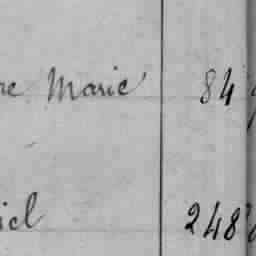 re Marie 84
iel 248